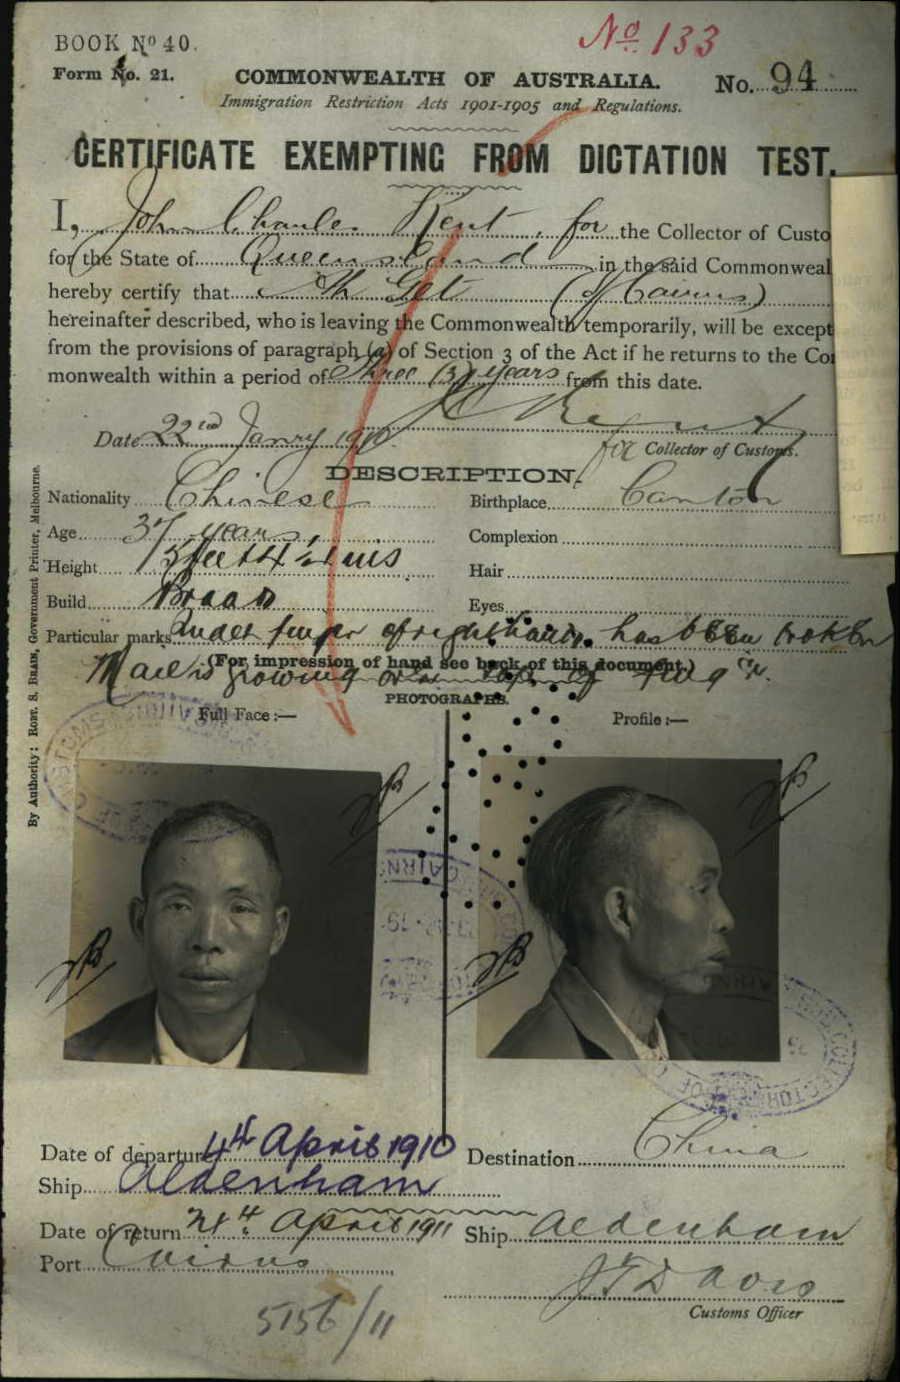 BOOK No 40.
No 133
Form No. 21.
COMMONWEALTH OF AUSTRALIA.
No. 94
Immigration Restriction Acts 1901-1905 and Regulations.
CERTIFICATE EXEMPTING FROM DICTATION TEST.
I, John Charles Kent for the Collector of Custo
for the State of Queensland in the said Commonweal
hereby certify that Ah Get (of Cairns)
hereinafter described, who is leaving the Commonwealth temporarily, will be except
from the provisions of paragraph (a) of Section 3 of the Act if he returns to the Co
monwealth within a period of Three (3) years from this date.
J C Kent
Date 22nd Janry 1910.
for Collector of Customs.
DESCRIPTION.
Nationality Chinese
Birthplace Canton
Age 37 years
Complexion
Height 5 feet 4 1/2 ins
Hair
Build Broad
Eyes
Particular marks finger of right hand has been broken
(For impression of hand see back of this document.)
growing on
PHOTOGRAPHS.
Full Face:—
Profile:—
By Authority: ROBT. S. BRAIN, Government Printer, Melbourne.
CAIRNS
Date of departure 4th April 1910
Destination China
Ship Aldenham
Date of return April 1911
Ship Aldenham
Port Cairns
J F Davis
Customs Officer
5156/11